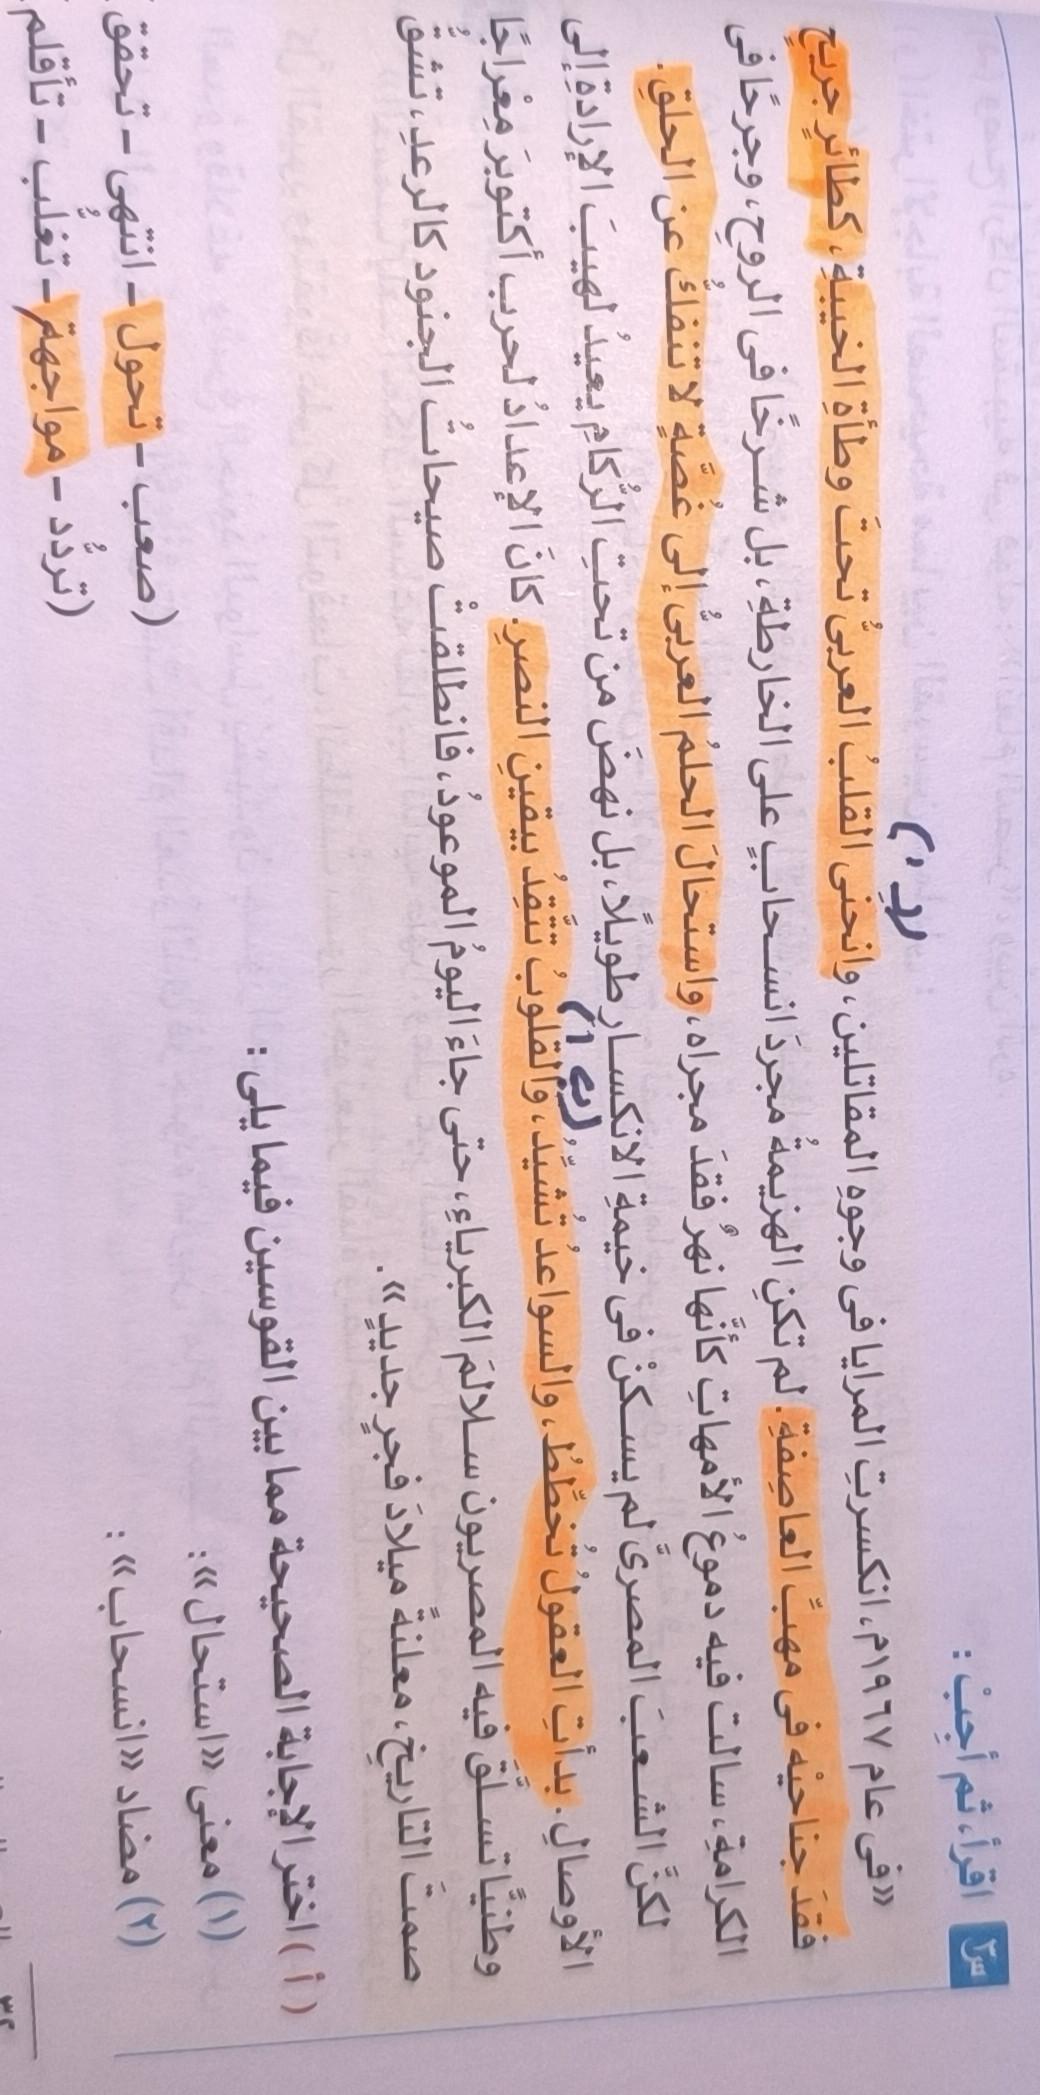 س٣ اقرأ، ثم أجِبْ :
«فى عام ١٩٦٧م، انكسرتِ المرايا فى وجوهِ المقاتلين، وانحنى القلبُ العربىُّ تحتَ وطأةِ الخيبةِ، كطائرٍ جريحٍ
فقدَ جناحيْه فى مهبِّ العاصِفةِ. لم تكنِ الهزيمةُ مجردَ انسحابٍ على الخارطةِ، بل شرخًا فى الروحِ، وجرحًا فى
الكرامةِ، سالت فيه دموعُ الأمهاتِ كأنَّها نهرٌ فقدَ مجراه، واستحالَ الحلمُ العربىُّ إلى غُصَّةٍ لا تنفكُّ عن الحلقِ.
لكنَّ الشعبَ المصرىَّ لم يسكنْ فى خيمةِ الانكسار طويلًا، بل نهضَ من تحتِ الرُّكامِ يعيدُ لهيبَ الإرادةِ إلى
الأوصالِ. بدأتِ العقولُ تُخطِّطُ، والسواعدُ تُشيِّدُ، والقلوبُ تتَّقِدُ بيقينِ النصرِ. كانَ الإعدادُ لحربِ أكتوبرَ مِعْراجًا
وطنيًّا تسلَّقَ فيه المصريون سلالمَ الكبرياءِ، حتى جاءَ اليومُ الموعودُ، فانطلقتْ صيحاتُ الجنود كالرعدِ، تشقُّ
صمتَ التاريخِ، معلنةً ميلادَ فجرٍ جديدٍ».
(أ) اختر الإجابة الصحيحة مما بين القوسين فيما يلى :
(١) معنى «استحال» : (صعب – تحول – انتهى – تحقق
(٢) مضاد «انسحاب» : (تردُّد – مواجهة – تغلُّب – تأقلم
٣٢